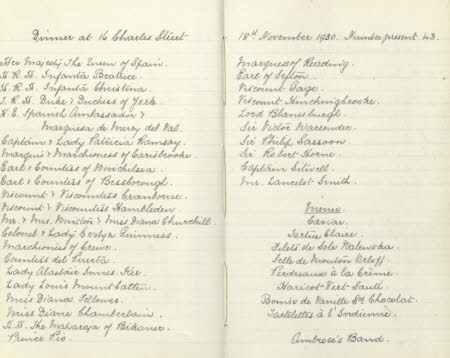 Dinner at 16 Charles Street
Her Majesty The Queen of Spain.
H.R.H. Infanta Beatrice.
H.R.H. Infanta Christina.
T.R.H. Duke & Duchess of York.
H.E. Spanish Ambassador &
Marquesa de Merry del Val.
Captain & Lady Patricia Ramsay.
Marquis & Marchioness of Carisbrooke.
Earl & Countess of Winchelsea.
Earl & Countess of Bessborough.
Viscount & Viscountess Cranborne.
Viscount & Viscountess Hambleden.
Mr. & Mrs. Winston & Miss Diana Churchill.
Colonel & Lady Evelyn Guinness.
Marchioness of Crewe.
Countess del Puerto.
Lady Alastair Innes Ker.
Lady Louis Mountbatten.
Miss Diana Fellowes.
Miss Diana Chamberlain.
H.H. The Maharaja of Bikaner.
Prince Pio.
18th November 1930. Number present 43.
Marquess of Reading.
Earl of Sefton.
Viscount Gage.
Viscount Hinchingbrooke.
Lord Blanesburgh.
Sir Victor Warrender.
Sir Philip Sassoon.
Sir Robert Horne.
Captain Sitwell.
Mr. Lancelot Smith.
Menu
Caviar.
Tortue Claire.
Filets de Sole Walewska.
Selle de Mouton Orloff.
Perdreaux à la Crème.
Haricot Vert Sauté.
Bombe de Vanille Sce Chocolat.
Tartelettes à l'Indienne.
Ambrose's Band.